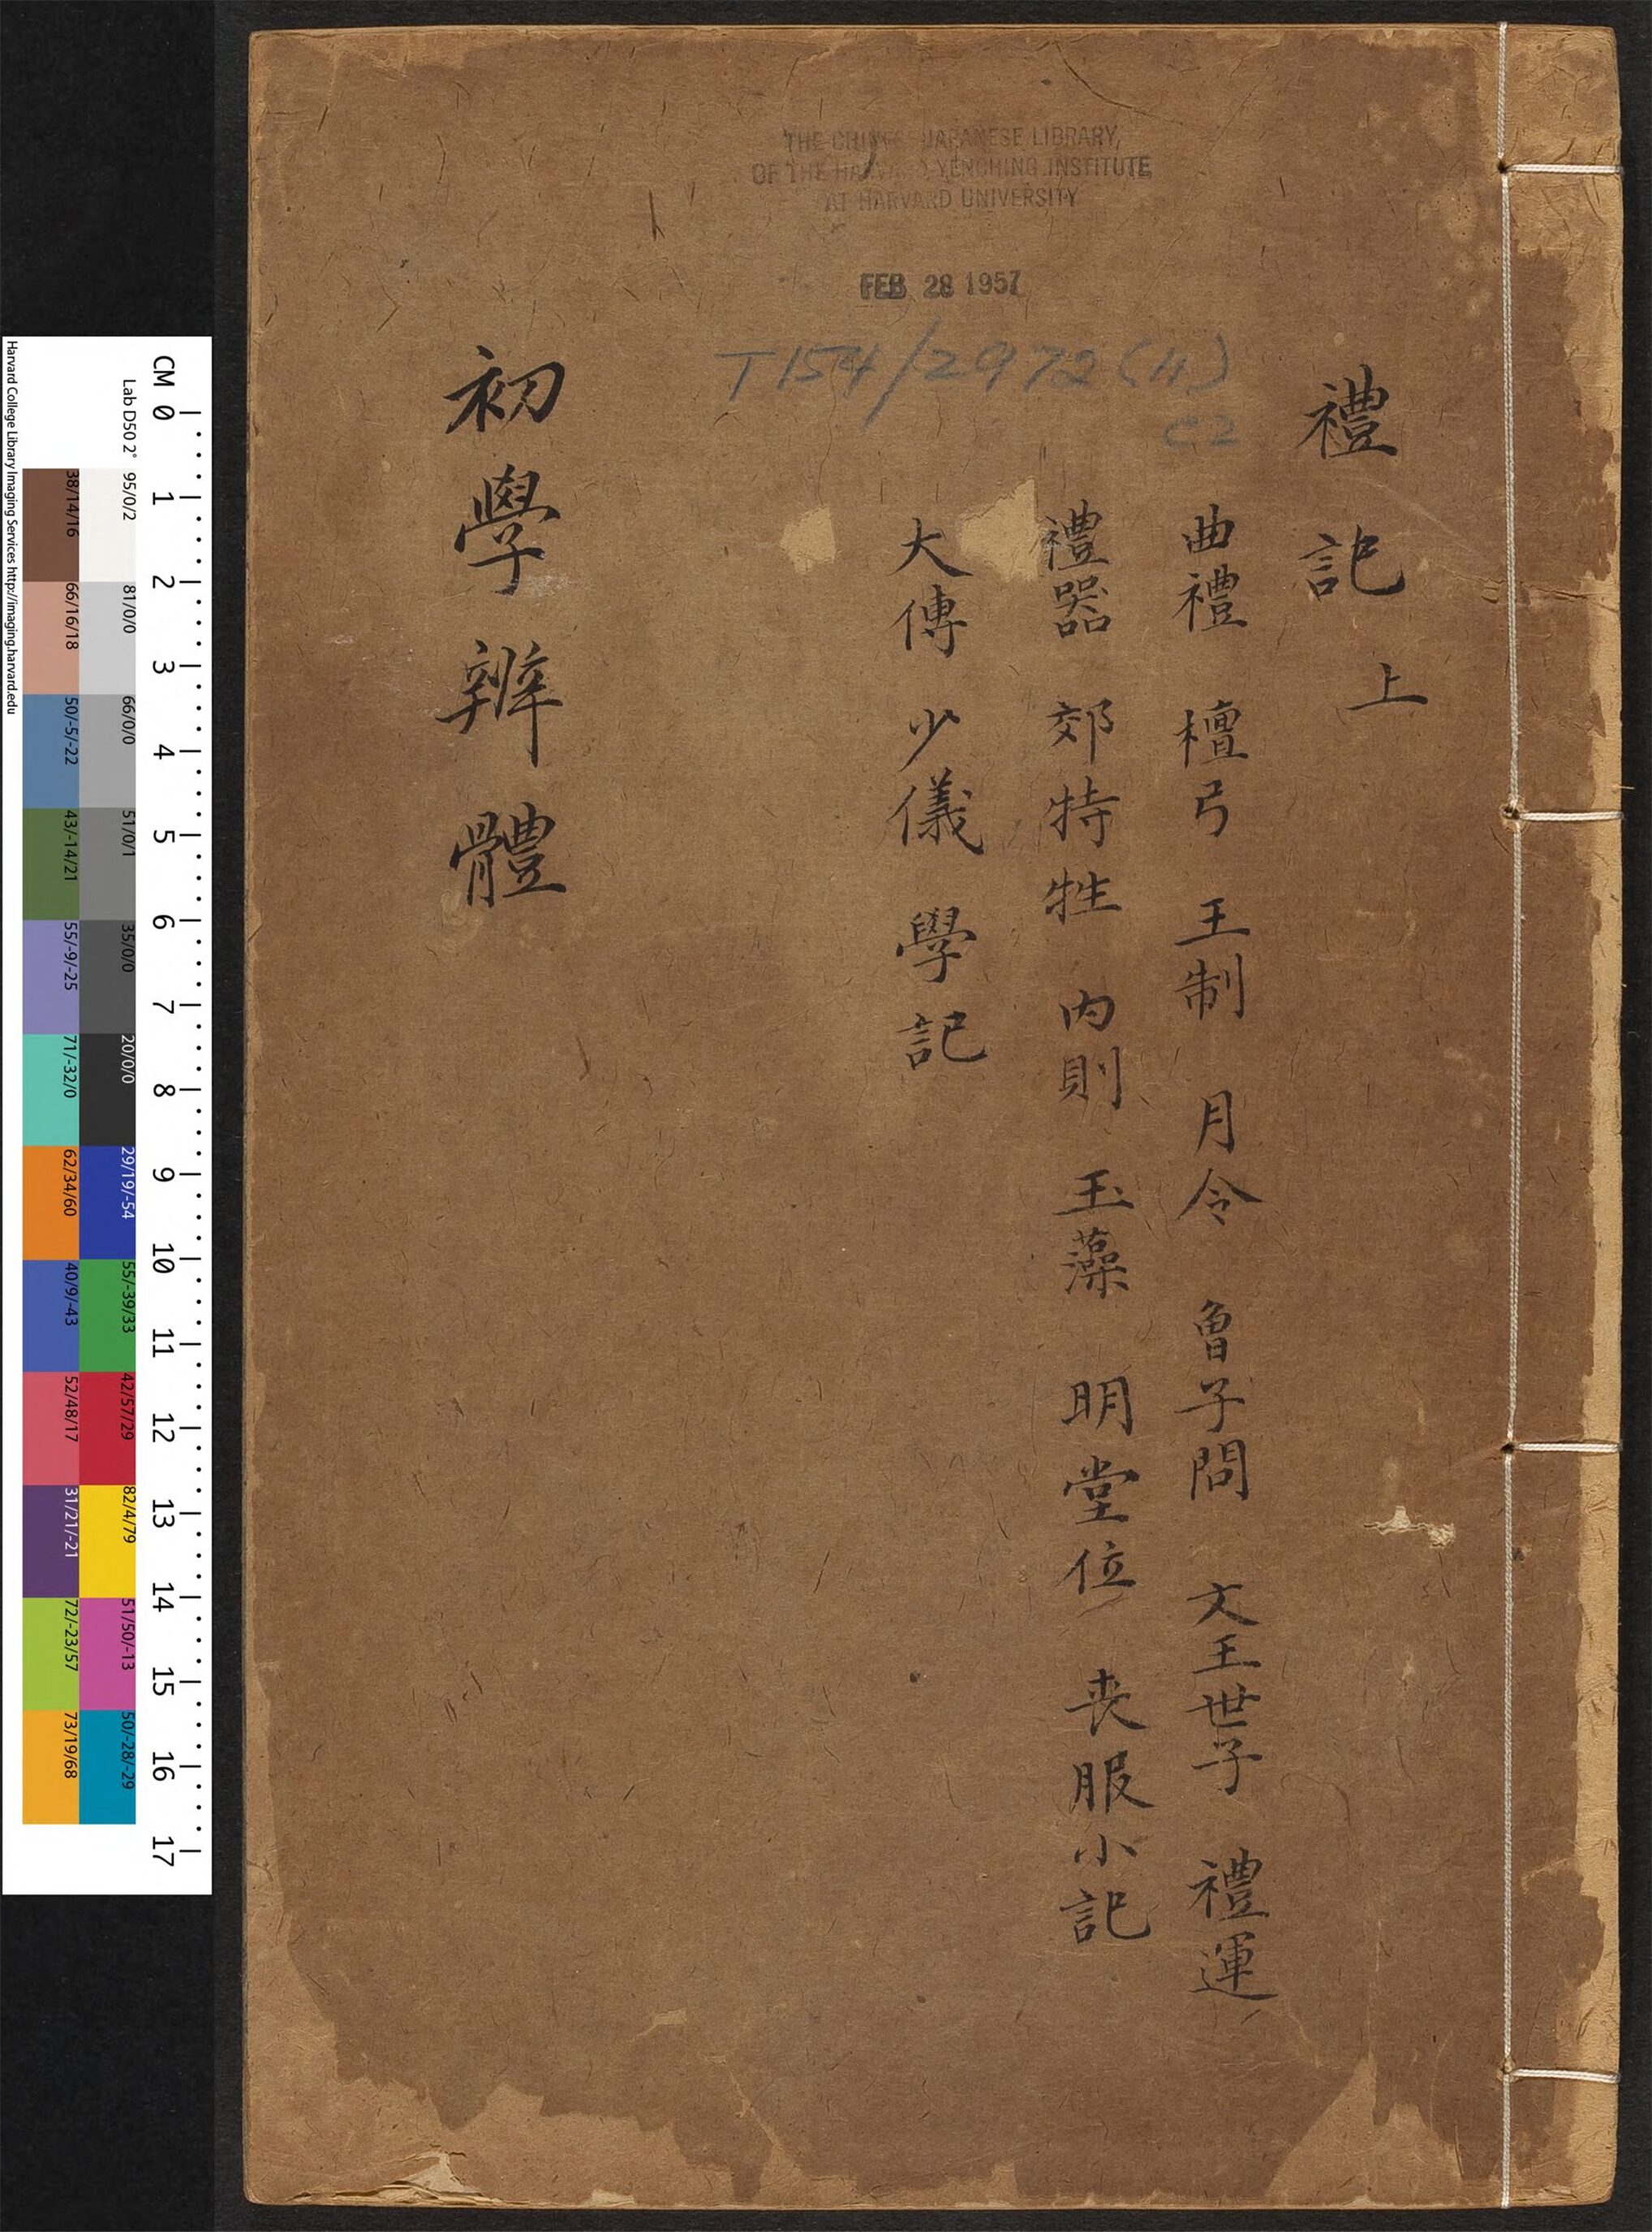 THE CHINESE JAPANESE LIBRARY,
OF THE HARVARD YENCHING INSTITUTE
AT HARVARD UNIVERSITY
FEB 28 1957
T154/2972(4)
C2
禮記上
曲禮 檀弓 王制 月令 曾子問 文王世子 禮運
禮器 郊特牲 內則 玉藻 明堂位 喪服小記
大傳 少儀 學記
初學辨體
CM 0 1 2 3 4 5 6 7 8 9 10 11 12 13 14 15 16 17
Lab D50 2° 95/0/2 81/0/0 66/0/0 51/0/1 35/0/0 20/0/0 29/19/-54 55/-39/33 42/57/29 82/4/79 51/50/-13 50/-28/-29
38/14/16 66/16/18 50/-5/-22 43/-14/21 55/-9/-25 71/-32/0 62/34/60 40/9/-43 52/48/17 31/21/-21 72/-23/57 73/19/68
Harvard College Library Imaging Services http://imaging.harvard.edu